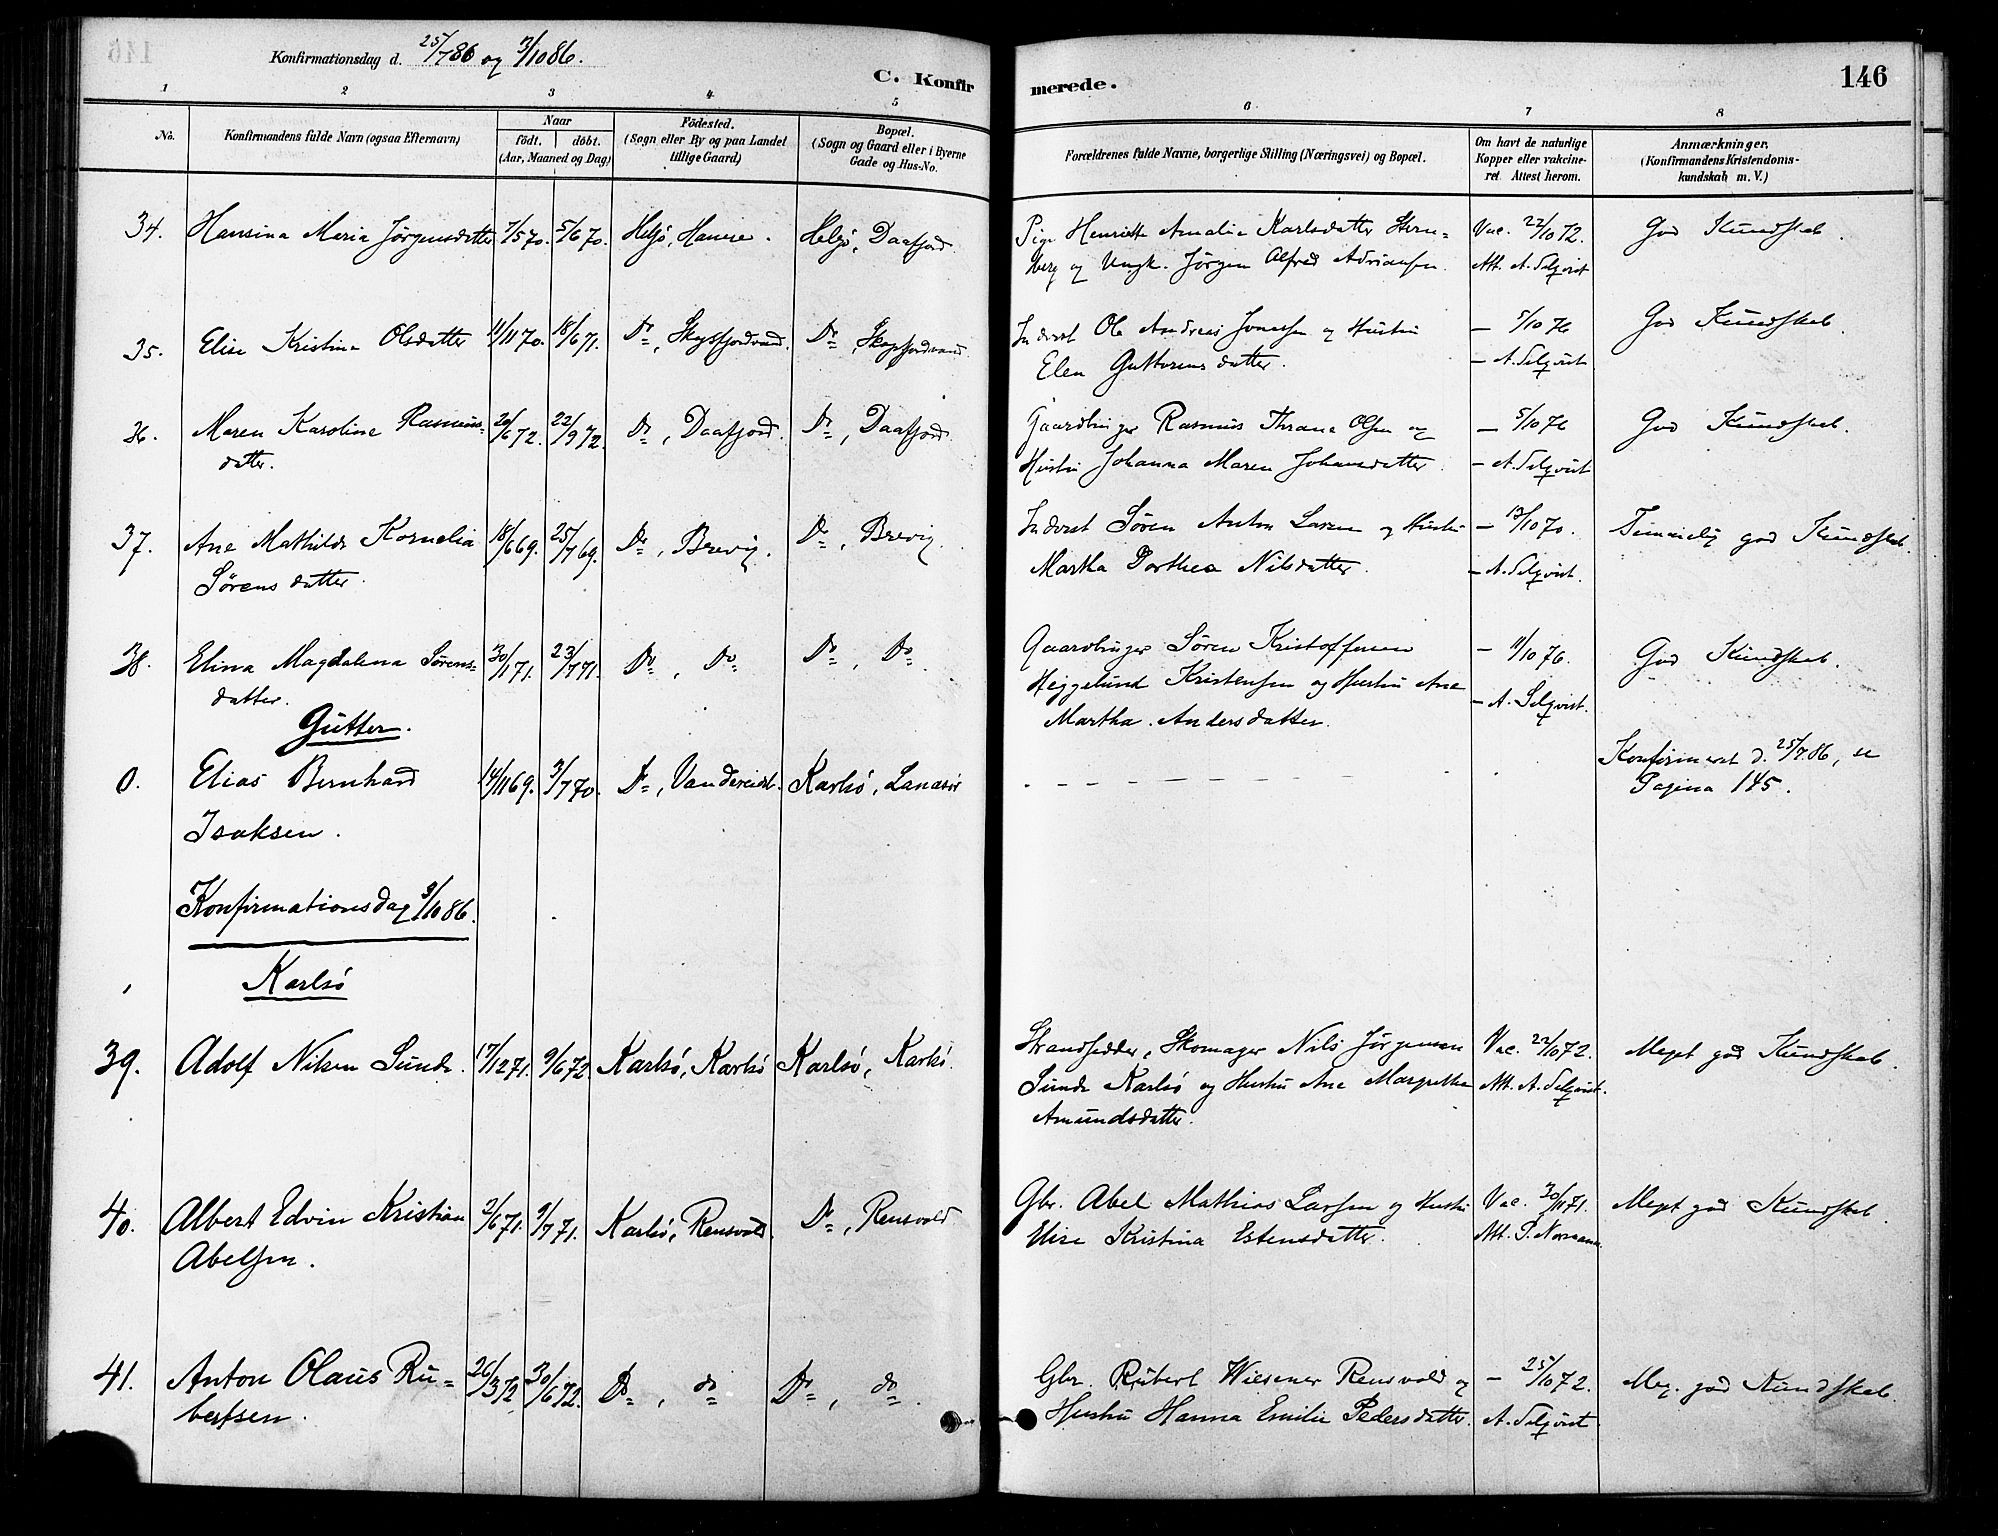 Konfirmationsdag d. 25/7 86 og 3/10 86.
C. Konfirmerede.
146
1 2 3 4 5 6 7 8
No.
Konfirmandens fulde Navn (ogsaa Efternavn)
Naar
födt. döbt.
(Aar, Maaned og Dag)
Födested.
(Sogn eller By og paa Landet
tillige Gaard)
Bopæl.
(Sogn og Gaard eller i Byerne
Gade og Hus-No.
Forældrenes fulde Navne, borgerlige Stilling (Næringsvei) og Bopæl.
Om havt de naturlige
Kopper eller vakcine-
ret Attest herom.
Anmærkninger.
(Konfirmandens Kristendoms-
kundskab m. V.)
34. Hansina Maria Jörgensdatter 7/5 70. 5/6 70. Helgö, Helgö, Daafjord
Pige Henriette Amalie Karlsdatter Stern= Vac. 22/10 72. God Kundskab.
berg og Ungk. Jörgen Alfred Adriansen. Att. A. Selqvist
35. Elise Kristina Olsdatter 11/11 70. 18/6 71. Do, Skogsfjordvand. Do, Skogsfjordvand
Inderst Ole Andreas Jonassen og Hustru — 5/10 76 God Kundskab.
Elen Guttormsdatter. — A. Selqvist
36. Maren Karoline Rasmus= 20/6 72. 22/9 72. Do, Daafjord. Do, Daafjord.
datter.
Gaardbruger Rasmus Thrane Olsen og — 5/10 76 God Kundskab.
Hustru Johanna Maren Johansdatter. — A. Selqvist
37. Ane Mathilde Kornelia 18/6 69. 25/7 69. Do, Brevig. Do, Brevig.
Sörensdatter.
Inderst Sören Anton Larsen og Hustru — 13/10 70. Temmelig god Kundskab.
Martha Dorthea Nilsdatter. — A. Selqvist.
38. Elina Magdalena Sörens= 30/1 71. 23/7 71. Do, Do Do, Do
datter.
Gaardbruger Sören Kristoffersen — 11/10 76. God Kundskab.
Heggelund Kristensen og Hustru Ane — A. Selqvist.
Martha Andersdatter.
Gutter.
0. Elias Bernhard 14/11 69. 3/7 70. Do, Vandereidet. Karlsö, Lanæsör
Isaksen.
— — — — — — — Konfirmeret d. 25/7 86, se
Pagina 145.
Konfirmationsdag 3/10 86.
Karlsö
39. Adolf Nilsen Sunde. 17/12 71. 9/6 72. Karlsö, Karlsö Karlsö, Karlsö.
Strandsidder, Skomager Nils Jörgensen Vac. 22/10 72. Meget god Kundskab.
Sunde Karlsö og Hustru Ane Margrethe Att. A. Selqvist.
Amundsdatter.
40. Albert Edvin Kristian 2/6 71. 9/7 71. Karlsö, Rensvold. Do, Rensvold
Abelsen.
Gbr. Abel Mathias Larsen og Hustru Vac. 30/11 71. Meget god Kundskab.
Elise Kristina Estensdatter. Att. P. Normann.
41. Anton Olaus Ru= 26/3 72 30/6 72. Do, do Do, do.
bertsen.
Gbr. Rubert Wiesener Rensvold og — 25/10 72. Meg. god Kundskab
Hustru Hanna Emilie Pedersdatter. A. Selqvist